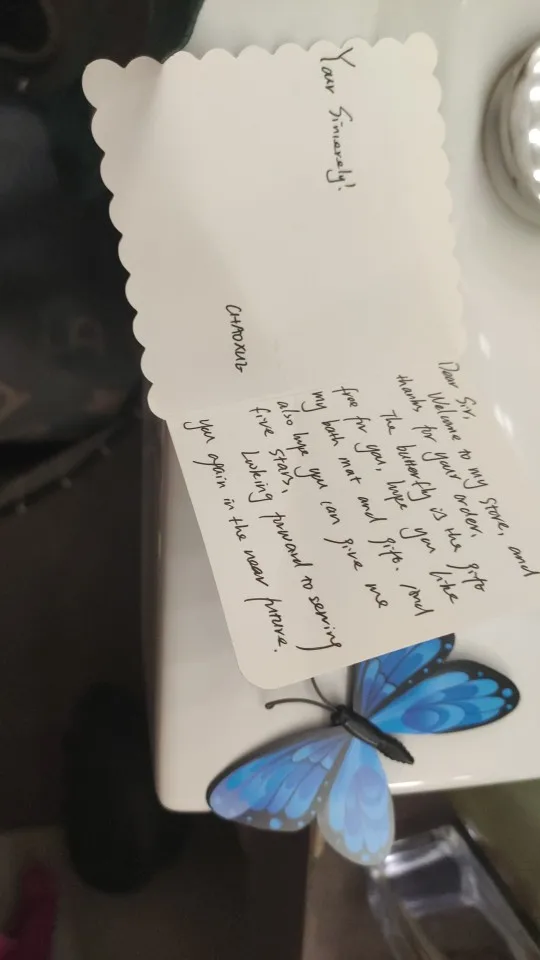 Dear Sir,
Welcome to my store, and
thanks for your order.
The butterfly is the gift
free for you. hope you like
my bath mat and gift. And
also hope you can give me
five stars.
Looking forward to serving
you again in the near future.
Your Sincerely!